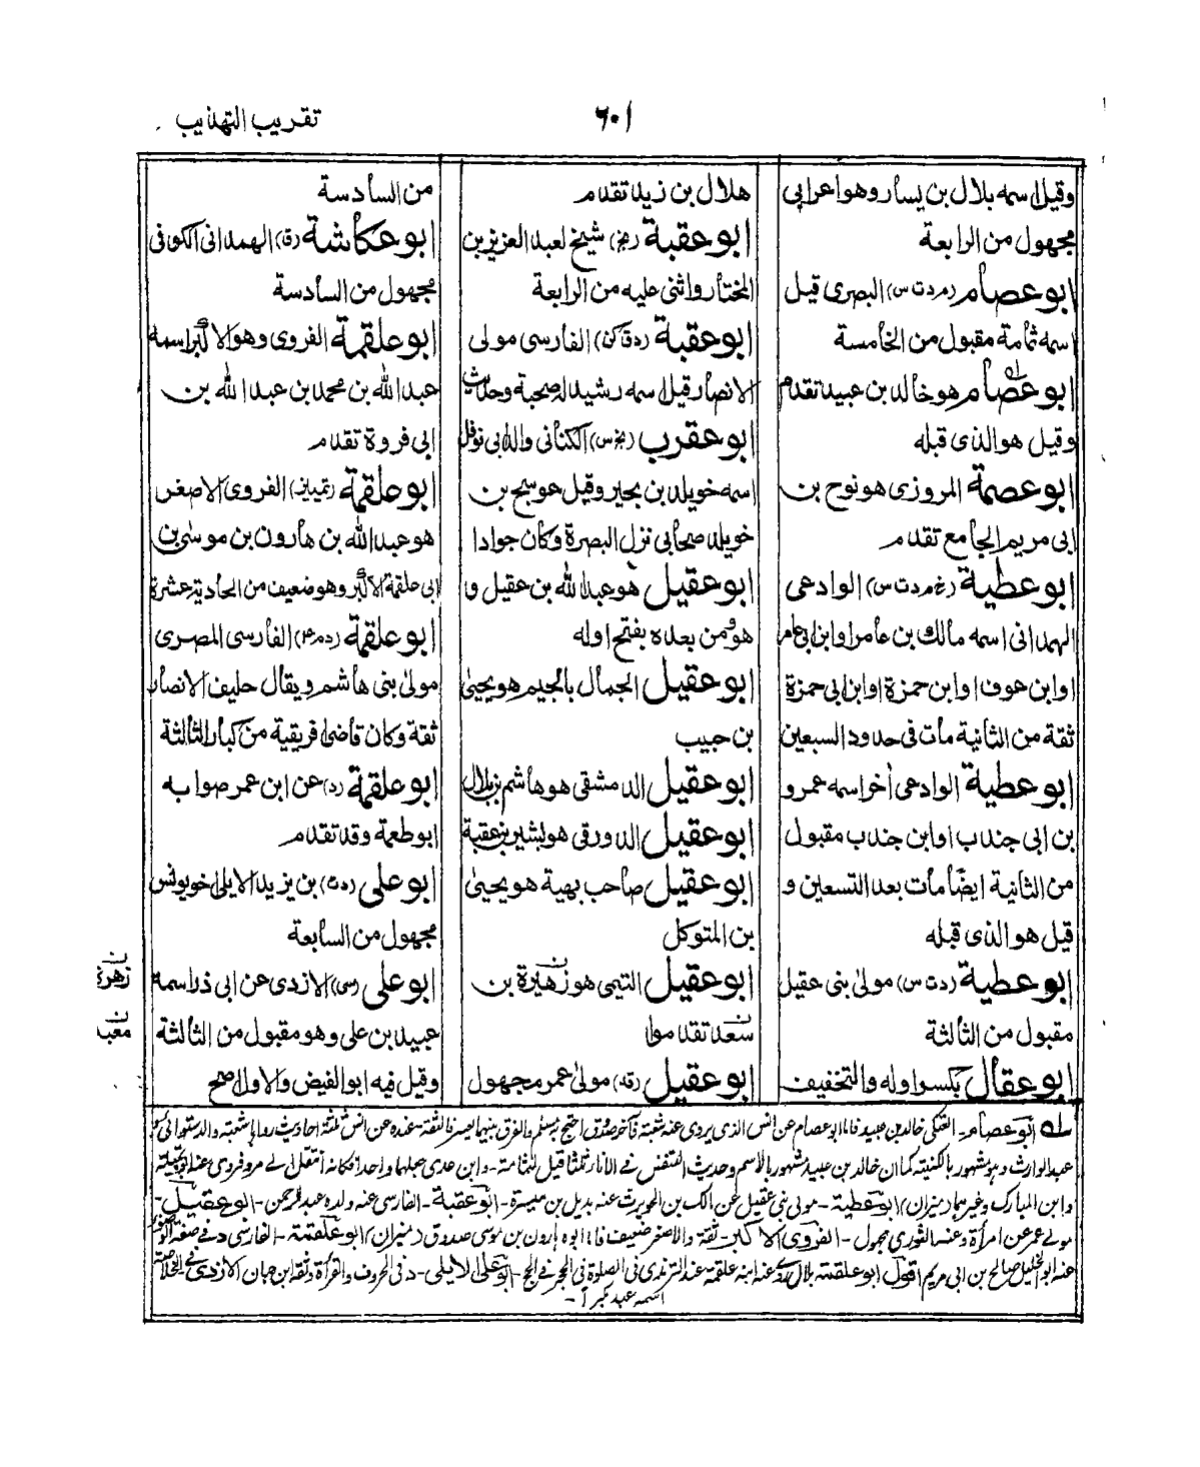 تقريب التهذيب
٦٠١
وقيل اسمه بلال بن يسار وهو اعرابى
مجهول من الرابعة
ابو عصام (م د ت س) البصرى قيل
اسمه ثمامة مقبول من الخامسة
ابو عصام هو خالد بن عبيد تقدم
وقيل هو الذى قبله
ابو عصمة المروزى هو نوح بن
ابى مريم الجامع تقدم
ابو عطية (خ م د ت س) الوادعى
الهمدانى اسمه مالك بن عامر او ابن ابى عامر
او ابن عوف او ابن حمزة او ابن ابى حمزة
ثقة من الثانية مات فى حدود السبعين
ابو عطية الوادعى أخر اسمه عمرو
بن ابى جندب او ابن جندب مقبول
من الثانية ايضا مات بعد التسعين و
قيل هو الذى قبله
ابو عطية (د ت س) مولى بنى عقيل
مقبول من الثالثة
ابو عقال بكسر اوله والتخفيف
هلال بن زيد تقدم
ابو عقبة (بخ) شيخ لعبد العزيز بن
المختار واثنى عليه من الرابعة
ابو عقبة (د ق) الفارسى مولى
الانصار قيل اسمه رشيد له صحبة وحديث
ابو عقرب (بخ س) الكنانى والد ابى نوفل
اسمه خويلد بن بجير وقيل عوسج بن
خويلد صحابى نزل البصرة وكان جوادا
ابو عقيل هو عبد الله بن عقيل و
هو فمن بعده بفتح اوله
ابو عقيل الجمال بالجيم هو يحيى
بن حبيب
ابو عقيل الدمشقى هو هاشم بن بلال
ابو عقيل الدورقى هو بشير بن عقبة
ابو عقيل صاحب بهية هو يحيى
بن المتوكل
ابو عقيل التيمى هو زهيرة بن
سعد تقدموا
ابو عقيل (قد) مولى عمر مجهول
من السادسة
ابو عكاشة (ق) الهمدانى الكوفى
مجهول من السادسة
ابو علقمة الفروى وهو الاكبر اسمه
عبد الله بن محمد بن عبد الله بن
ابى فروة تقدم
ابو علقمة (تمييز) الفروى الاصغر
هو عبد الله بن هارون بن موسى بن
ابى علقمة الاكبر وهو ضعيف من الحادية عشرة
ابو علقمة (ر م ٤) الفارسى المصرى
مولى بنى هاشم ويقال حليف الانصار
ثقة وكان قاضى افريقية من كبار الثالثة
ابو علقمة (د) عن ابن عمر صوابه
ابو طعمة وقد تقدم
ابو على (د ت) بن يزيد الايلى اخو يونس
مجهول من السابعة
ابو على (سى) الازدى عن ابى ذر اسمه
عبيد بن على وهو مقبول من الثالثة
وقيل فيه ابو الفيض والاول اصح
ن
زهرة
ن
معبد
له ابو عصام - العتكى خالد بن عبيد فاما ابو عصام عن انس الذى يروى عنه شعبة فآخر صدوق احتج به مسلم والفرق بينهما
عبد الوارث وهو مشهور بالكنية كما ان خالد بن عبيد مشهور بالاسم وحديث التنفس فى الاناء ثلثا قيل لثمامة - وابن عدى جعلهما واحدا فكانه انتقل الى مرو فروى عنه
وابن المبارك وغيرهما (ميزان) ابو عطية - مولى بنى عقيل عن مالك بن الحويرث عنه بديل بن ميسرة - ابو عقبة - الفارسى عنه ولده عبد الرحمن - ابو عقيل -
مولى عمر عن امرأة وعنه الثورى مجهول - الفروى الاكبر - ثقة والاصغر ضعيف فاما ابوه هارون بن موسى صدوق (ميزان) ابو علقمة - الفارسى
عنه ابو الخليل صالح بن ابى مريم اقول ابو علقمة بلال عنه ابنه علقمة عند الترمذى فى الصلوة فى الحجر فى الحج - ابو على الايلى - د فى الحروف والقرأة وثقه ابن حبان الازدى فى الخلاصة
اسمه عبيد